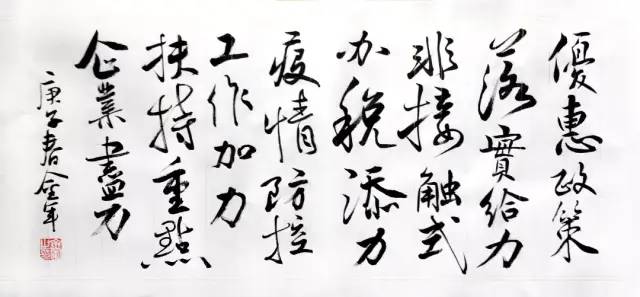 優惠政策
落實給力
非接触式
办税添力
疫情防控
工作加力
扶持重點
企業盡力
庚子春金年